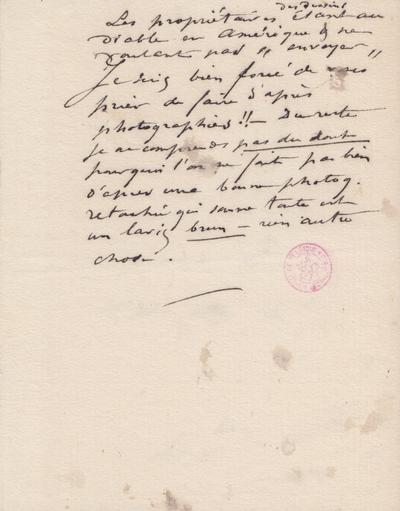 des dessins
Les propriétaires étant au
Diable en Amérique & ne
voulant pas "envoyer"
je suis bien forcé de vous
prier de faire d'après
photographies!! — Du reste
je ne comprends pas du tout
pourquoi l'on ne fait pas bien
d'après une bonne photog.
retouchée qui somme toute est
un lavis brun — rien autre
chose.